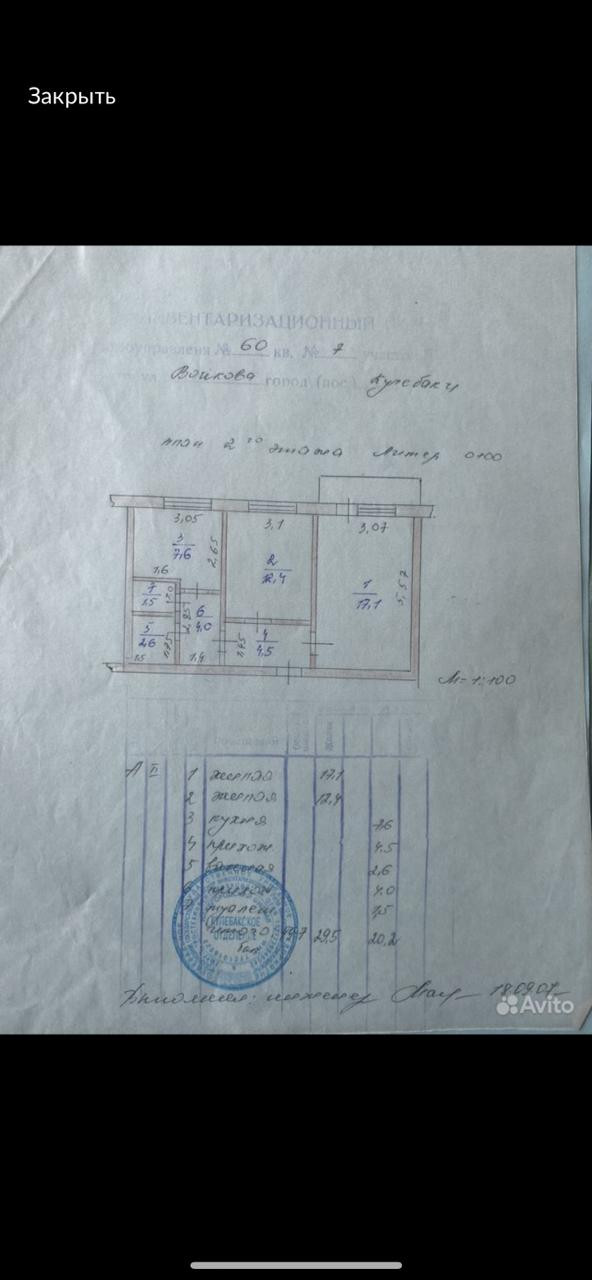 Закрыть
ИНВЕНТАРИЗАЦИОННЫЙ
домоуправления № 60 кв. № 7
ул. Войкова город (пос.) Кулебаки
план 2го этажа Литер
3,05 3,1 3,07
3 7,6 2,65
2 12,4
1 17,1 5,57
1,6
7 1,5
6 4,0 2,85
5 2,6 1,75
4 4,5 1,75
1,5 1,4
М=1:100
А II 1 жилая 17,1
2 жилая 12,4
3 кухня 7,6
4 прихож 4,5
5 ванная 2,6
6 прихож 4,0
7 туалет 1,5
итого 49,7 29,5 20,2
КУЛЕБАКСКОЕ
ОТДЕЛЕНИЕ
Выполнил: инженер 18.09.07
Avito